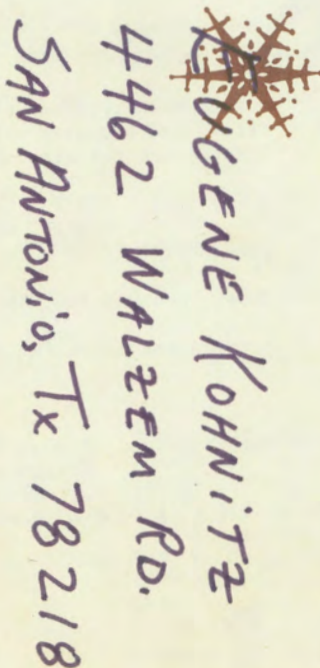 EUGENE KOHNiTZ
4462 WALZEM RD.
SAN ANTONiO, Tx 78218